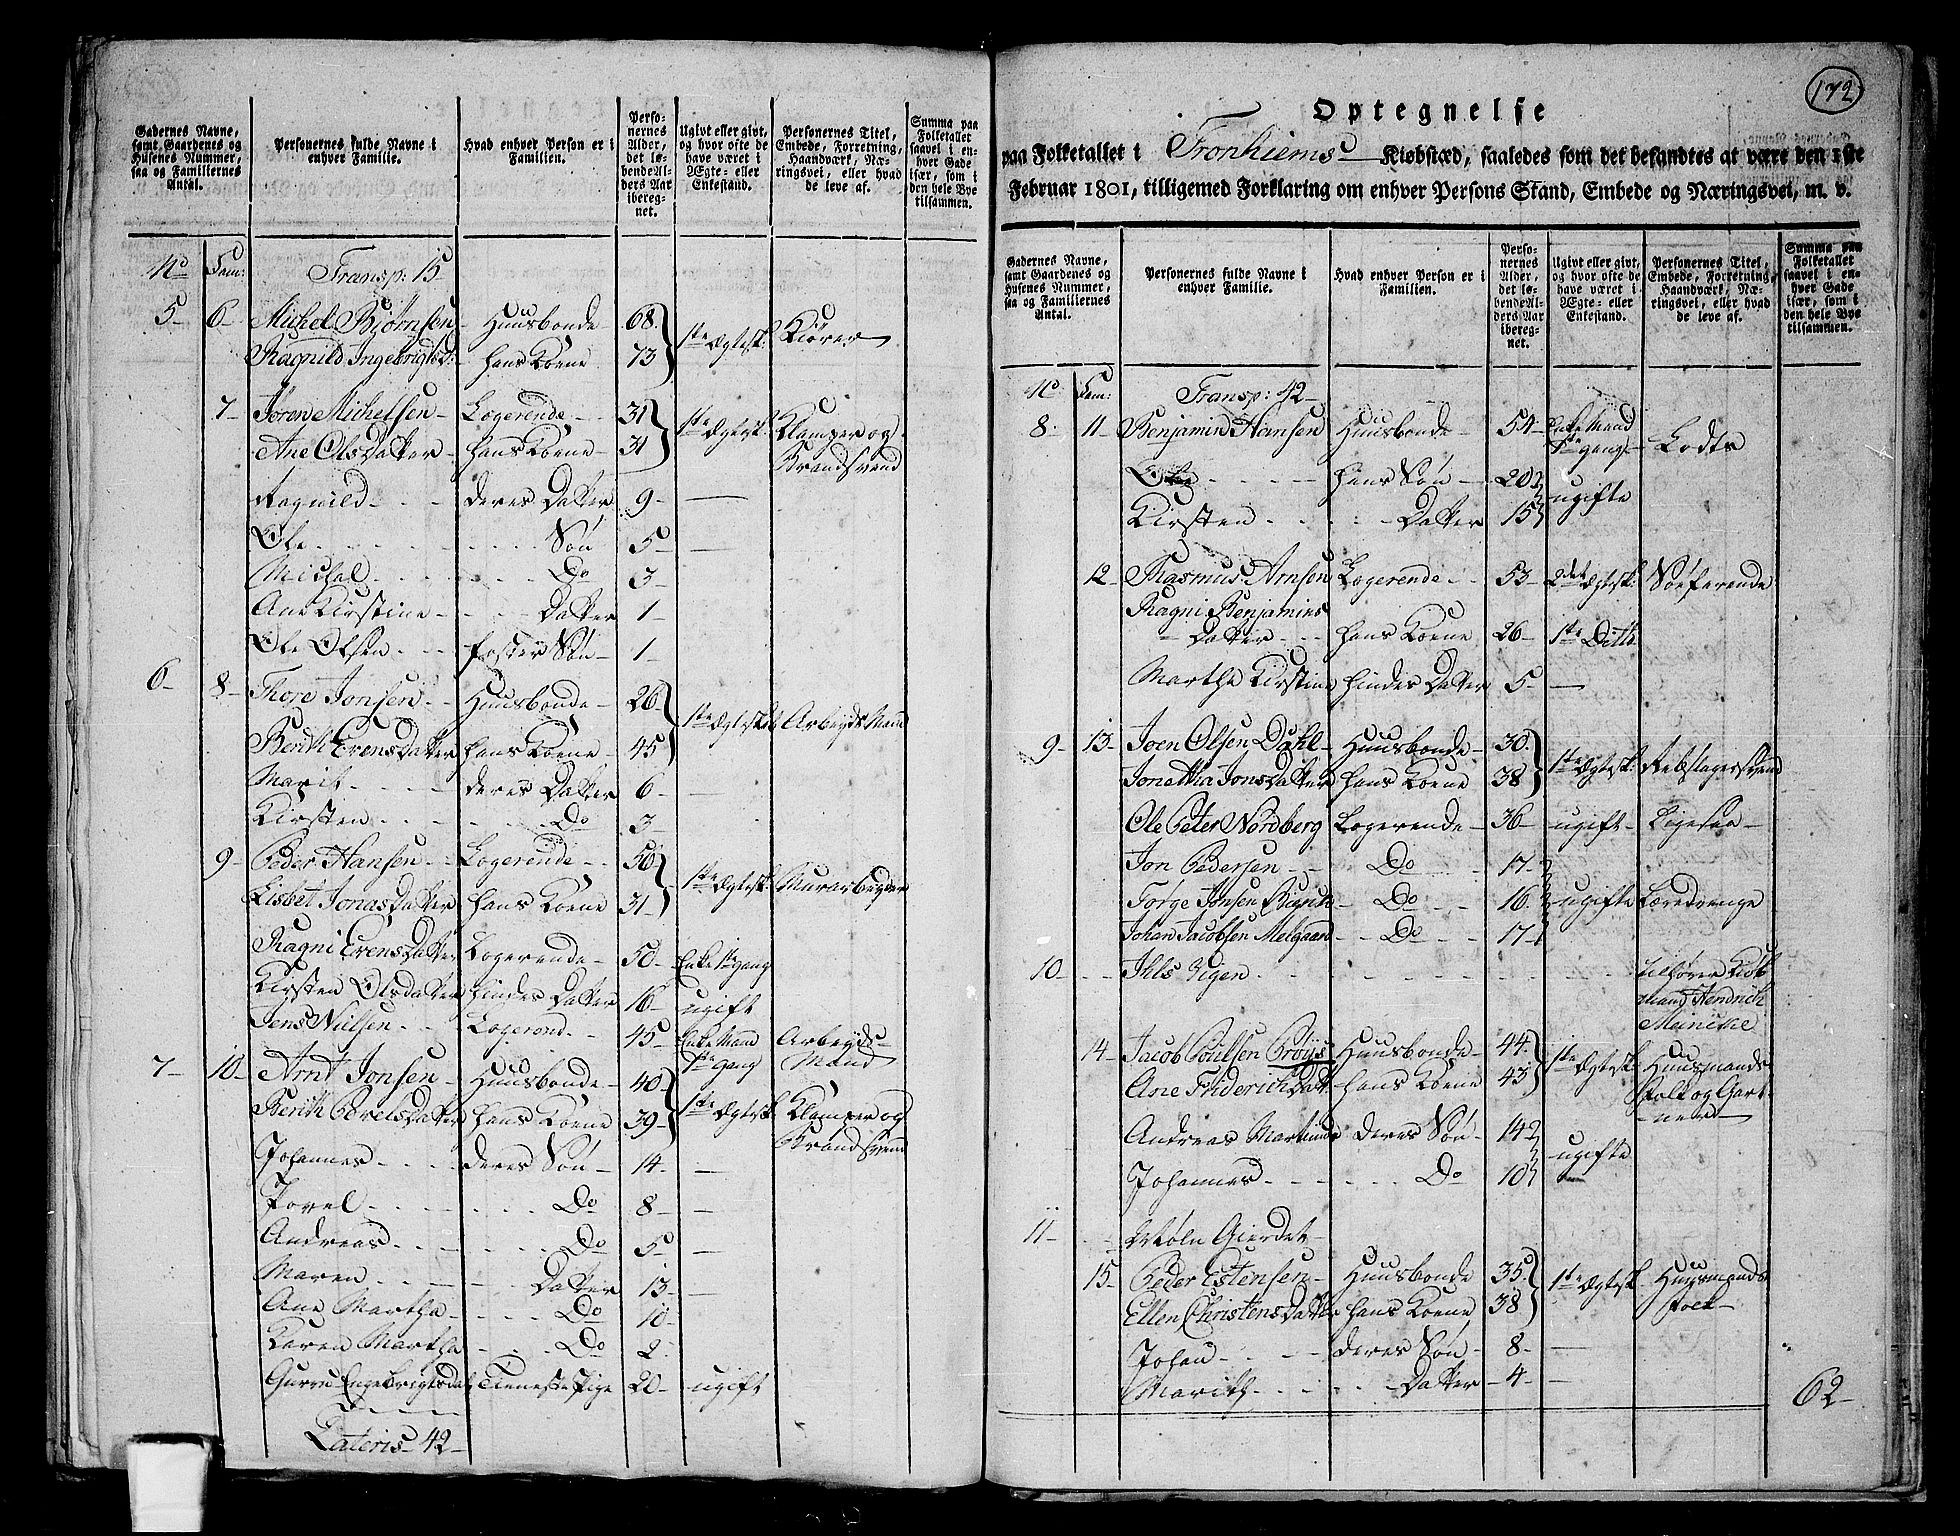 Gadernes Navne, samt Gaardenes og Husenes Nummer, saa og Familiernes Antal.
Personernes fulde Navne i enhver Familie.
Hvad enhver Person er i Familien.
Personernes Alder, det løbende Alders Aar iberegnet.
Ugivt eller givt, og hvor ofte de have været i Ægte- eller Enkestand.
Personernes Titel, Embede, Forretning, Haandværk, Næringsvei, eller hvad de leve af.
Summa paa Folketallet saavel i enhver Gade især, som i den hele Bye tilsammen.
No Fam: Transp: 15
5 - 6 - Michel Biørnsen - Huusbonde - 68 1ste Ægtesk: Kiører
Ragnild Ingebrigtsd: hans Kone 73
7 - Joren Michelsen - Logerende - 31 1ste Ægtesk: Klamper og
Ane OlsDatter - hans Kone - 31 Brandsvend
Ragnild - deres Datter 9 -
Ole - Søn 5 -
Michel - Do 3 -
Ane Kirstine - Datter 1 -
Ole Olsen - foster Søn 1 -
6 - 8 - Thore Jonsen - Huusbonde - 26 1ste Ægtesk: Arbeyds Mand
Berith EvensDatter hans Kone - 45
Marit - deres Datter 6 -
Kirsten - Do 3 -
9 - Peder Hansen - Logerende - 56 1ste Ægtesk: Murarbeyder
Lisbet JonasDatter hans Kone 31
Ragni EvensDatter Logerende - 50 - Enke 1ste gang
Kirsten OlsDatter hindes Datter 16 - ugift
Jens Nielsen - Logerend - 45 - Enke Mand 1ste gang Arbeyds-Mand
7 - 10 - Arnt Jonsen - Huusbonde - 40 1ste Ægtesk: Klamper og
Berith PovelsDatter hans Kone 39 Brandsvend
Johannes - deres Søn - 14 -
Povel - Do 8 -
Andreas - Do 5 -
Maren - Datter 13 -
Ane Martha - Do 10 -
Karen Martha - Do 2 -
Gurru Engebrigtsdat: Tieneste Pige 20 - ugift
Lateris 42 -
172
Optegnelse
paa Folketallet i Tronhiems Kiøbstæd, saaledes som det befandtes at være den 1ste
Februar 1801, tilligemed Forklaring om enhver Persons Stand, Embede og Næringsvei, m. v.
Gadernes Navne, samt Gaardenes og Husenes Nummer, saa og Familiernes Antal.
Personernes fulde Navne i enhver Familie.
Hvad enhver Person er i Familien.
Personernes Alder, det løbende Alders Aar iberegnet.
Ugivt eller givt, og hvor ofte de have været i Ægte- eller Enkestand.
Personernes Titel, Embede, Forretning, Haandværk, Næringsvei, eller hvad de leve af.
Summa paa Folketallet saavel i enhver Gade især, som i den hele Bye tilsammen.
No Fam: Transp: 42 -
8 - 11 - Benjamin Hansen Huusbonde - 54 - Enke Mand 1ste gang - Lodts
Ole - hans Søn 20 ugifte
Kirsten - Datter 15
12 - Rasmus Arnsen Logerende - 53 - 2det Ægtesk: Søefarende
Ragni Benjamins
Datter - hans Kone 26 - 1ste Ditto
Martha Kirstine hindes Datter 5 -
9 - 13 - Joen Olsen Dahl - Huusbonde - 30 1ste Ægtesk: Rebslagersvend
Jonetta JonsDatter hans Kone 38
Ole Peter Nordberg Logerende - 36 - ugift - Ligesaa -
Jon Pedersen - Do 17 -
Jørge Jonsen - Do 16 ugifte Læredrenge
Johan Jacobsen Melgaard - Do - 17
10 - Ihls Vigen - tilhører Kiøb-
mand Hendrich
Meincke
14 - Jacob Poulsen Huusbonde - 44 1ste Ægtesk: Huusmands
Ane FriderichDat: hans Kone 43 folk og Gart-
ner
Andreas Martinus deres Søn - 14 ugifte
Johannes - Do 10
11 - Møln Gierdet -
15 - Peder Estensen - Huusbonde 35 1ste Ægtesk: Huusmands
Ellen ChristensDatter hans Kone 38 folk -
Johan - deres Søn - 8 -
Marith - Datter - 4 -
62 -